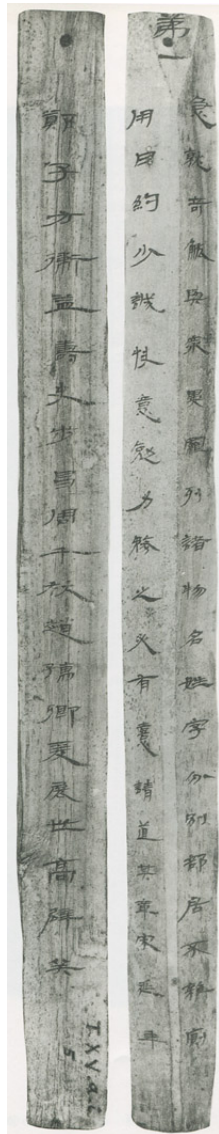 第一
急就奇觚與衆異羅列諸物名姓字分別部居不雜廁
用日約少誠快意勉力務之必有憙請道其章宋延年
鄭子方衛益壽史步昌周千秋趙孺卿爰展世高辟兵
T.XV.a.i.
5